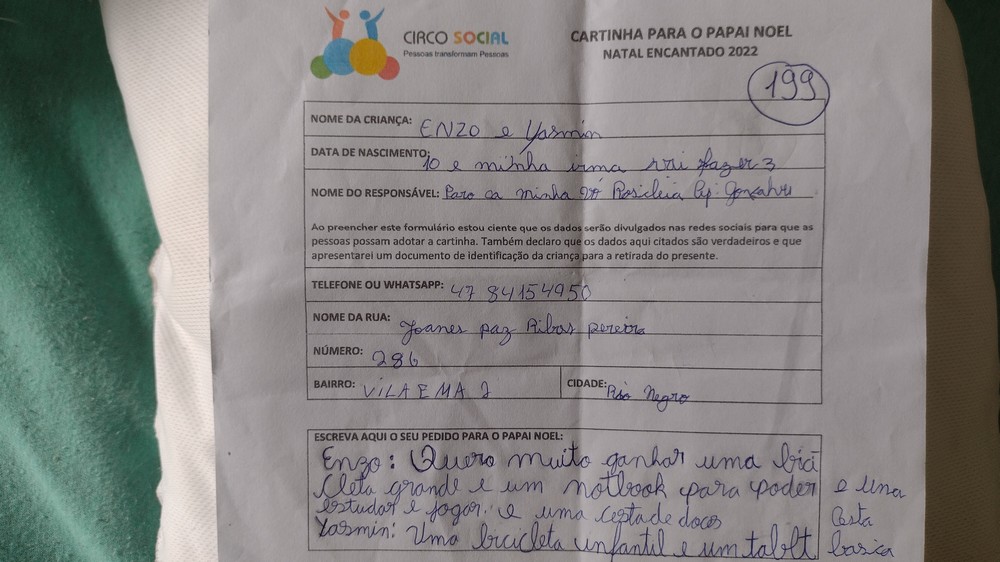 CIRCO SOCIAL
Pessoas transformam Pessoas
CARTINHA PARA O PAPAI NOEL
NATAL ENCANTADO 2022
199
NOME DA CRIANÇA: ENZO e Yasmin
DATA DE NASCIMENTO: 10 e minha irma vai fazer 3
NOME DO RESPONSÁVEL: Para ca minha Vó Rosicleia Ap. Gonçalves
Ao preencher este formulário estou ciente que os dados serão divulgados nas redes sociais para que as
pessoas possam adotar a cartinha. Também declaro que os dados aqui citados são verdadeiros e que
apresentarei um documento de identificação da criança para a retirada do presente.
TELEFONE OU WHATSAPP: 47 84154950
NOME DA RUA: Joanes paz Ribas pereira
NÚMERO: 286
BAIRRO: VILA EMA 2 CIDADE: Rio Negro
ESCREVA AQUI O SEU PEDIDO PARA O PAPAI NOEL:
Enzo: Quero muito ganhar uma bici
cleta grande e um notbook para poder e una
estudar e jogar. e uma cesta de doces Casta
Yasmin: Uma bicicleta infantil e um tablt basica